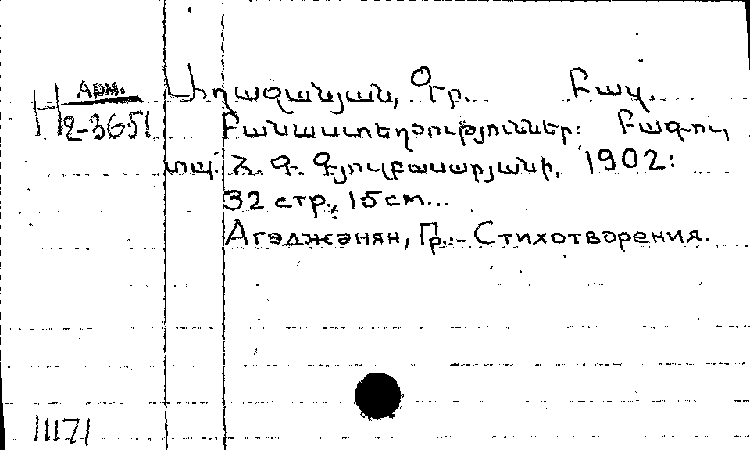 Арм.
Աղաջանյան, Գր.
H 2-3651
Բանաստեղծություններ: Բագու,
տպ. Գ. Գյուլբասարյանի, 1902:
32 стр., 15 см...
Агаджанян, Гр. - Стихотворения.
11171